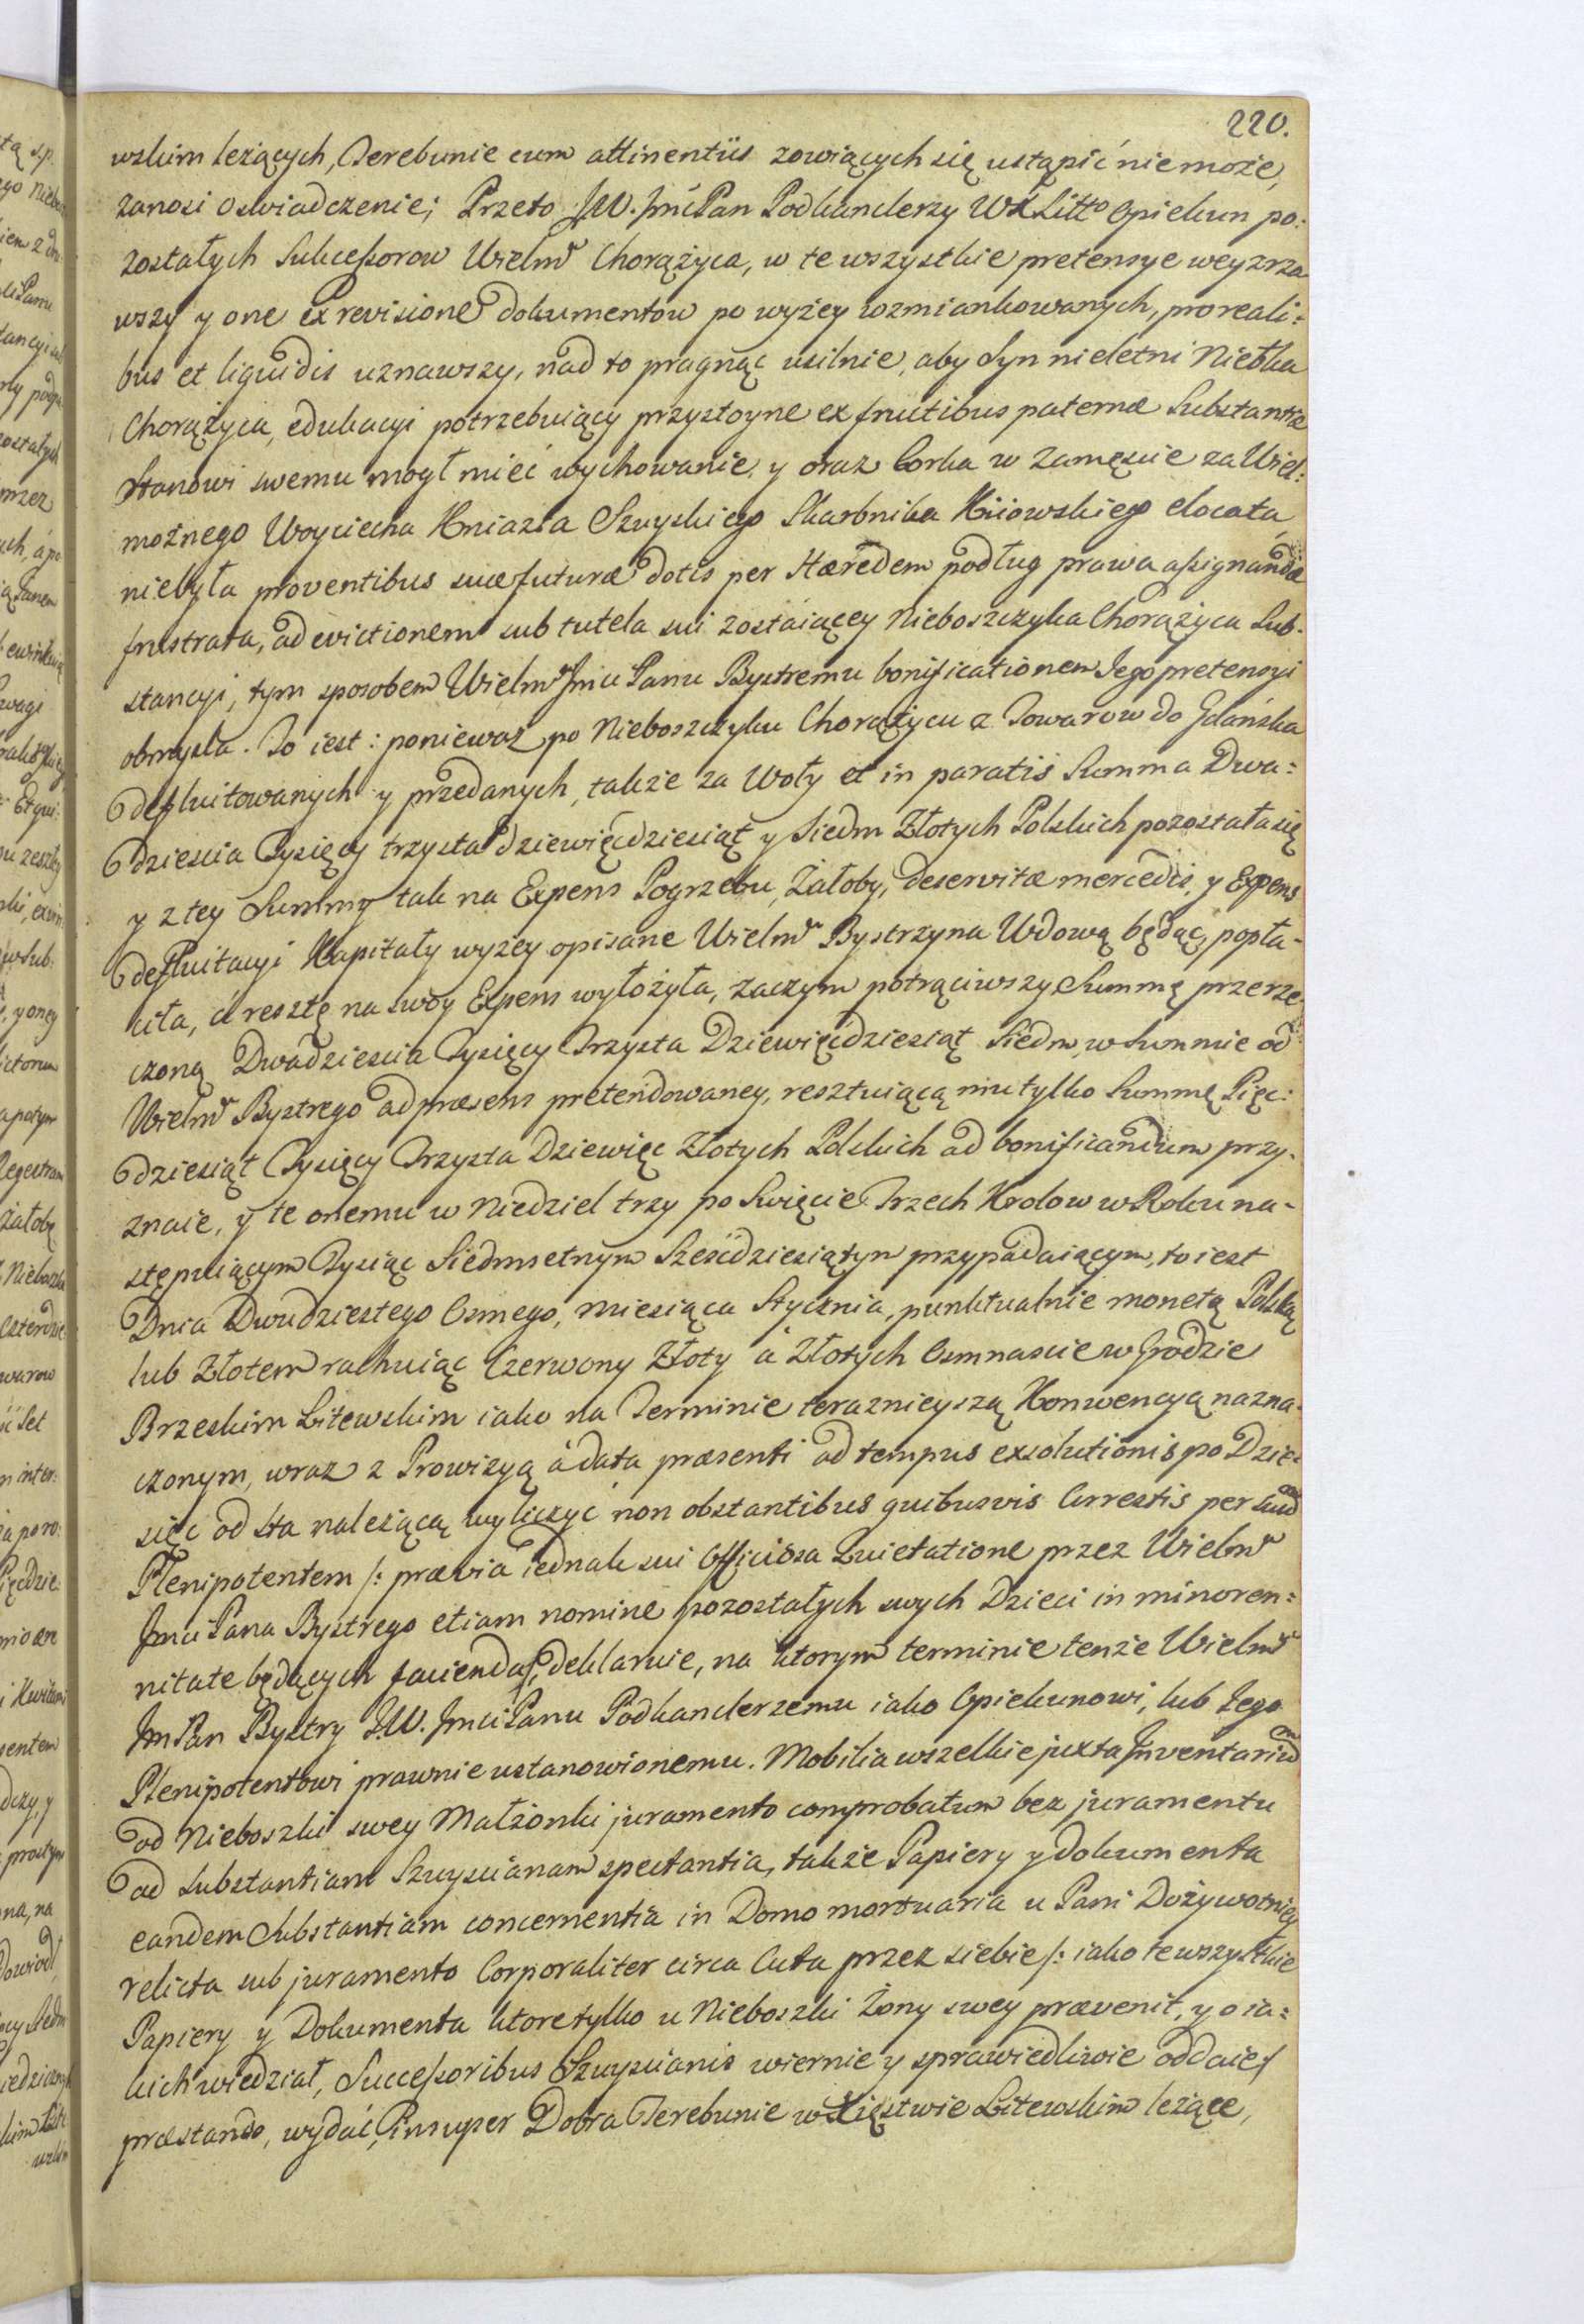 220.
wskim leżących, Terebunie cum attinentiis zowiących się ustąpić nie może,
zanosi oswiadczenie; Przeto JW. Jmć Pan Podkanclerzy WX Litto Opiekun po:
zostałych Sukceſsorow Wielmo Chorążyca, w te wszystkie pretensye weyzrza
wszy y one ex revisione dokumentow po wyżey wzmiankowanych, pro reali:
bus et liquidis uznawszy, nad to pragnąc usilnie, aby Syn nieletni Niebka
Chorążyca, edukacyi potrzebuiący przystoyne ex fructibus paternæ Substantiæ
Stanowi swemu mogł mieć wychowanie, y oraz Corka w Zamęscie za Wiel:
możnego Woyciecha Kniazia Szuyskiego Skarbnika Kiiowskiego elocata
niebyła proventibus suæ futuræ dotis per Hæredem podług prawa aſsignandæ
frustrata, ad evictionem sub tutela sui zostaiącey Nieboszczyka Chorążyca Sub.
stancyi, tym sposobem Wielmo Jmci Panu Bystremu bonificationem Jego pretensyi
obmysla. To iest: poniewaz po Nieboszczyku Chorążycu z Towarow do Gdańska
defluitowanych y przedanych, także za Woły et in paratis Summa Dwa:
dziescia Tysięcy trzysta dziewięćdziesiąt y Siedm Złotych Polskich pozostała się
y z tey Summy tak na Expens Pogrzebu, Żałoby, deservitæ mercedis, y Expens
defluitacyi Kapitały wyżey opisane Wielma Bystrzyna Wdową będąc, popła-
ciła, á resztę na swoy Expens wyłożyła, zaczym potrąciwszy Summę przerze
czoną Dwadziescia Tysięcy Trzysta Dziewięćdziesiąt Siedm, w Summie od
Wielmo Bystrego ad præsens pretendowaney, resztuiącą mu tylko Summę Pięć:
dziesiąt Tysięcy Trzysta Dziewięc Złotych Polskich ad bonificandum przy-
znaie, y te onemu w Niedziel trzy po Swięcie Trzech Krolow w Roku na-
stępuiącym Tysiąc Siedmsetnym Sześćdziesiątym przypadaiącym, to iest
Dnia Dwudziestego Osmego, miesiąca Stycznia, punktualnie monetą Polską
lub Złotem rachuiąc Czerwony Złoty á Złotych Osmnascie w Grodzie
Brzeskim Litewskim iako na Terminie teraznieyszą Konwencyą nazna-
czonym, wraz z Prowizyą á data præsenti ad tempus exsolutionis po Dzie-
sięc od sta należącą wyliczyć non obstantibus quibusvis Arrestis per suum
Plenipotentem /: prævia iednak sui Officiosa Quietatione przez Wielmo
Jmci Pana Bystrego etiam nomine pozostałych swych Dzieci in minoren:
nitate będących facienda :/ deklaruie, na ktorym terminie tenże Wielmo
Jm Pan Bystry J.W. Jmci Panu Podkanclerzemu iako Opiekunowi, lub Jego
Plenipotentowi prawnie ustanowionemu. Mobilia wszelkie juxta Inventarium
od Nieboszki swey Małżonki juramento comprobatum bez juramentu
ad Substantiam Szuyscianam spectantia, także Papiery y dokumenta
eandem Substantiam concernentia in Domo mortuaria u Pani Dożywotniey
relicta sub juramento Corporaliter circa Acta przez siebie /: iako te wszystkie
Papiery y Dokumenta ktore tylko u Nieboszki Żony swey prævenit, y o ia:
kich wiedział, Succeſsoribus Szuyscianis wiernie y sprawiedliwie oddaie :/
præstando, wydać, insuper Dobra Terebunie w Xięstwie Litewskim leżące,